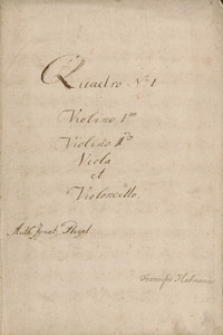 Quadro No 1
Violino 1mo
Violino 2do
Viola
et
Violoncello.
Auth. Ignat. Pleyel